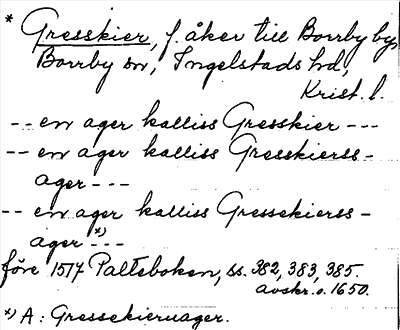 * Gresskier, f. åker till Borrby by,
Borrby sn, Ingelstads hd,
Krist. l.
-- en ager kalliss Gresskier ---
-- en ager kalliss Gresskierss-
ager ---
-- en ager kalliss Gressekierss-
ager *) --
före 1517 Palteboken, ss. 382, 383, 385.
avskr. o. 1650.
*) A: Gressekieruager.